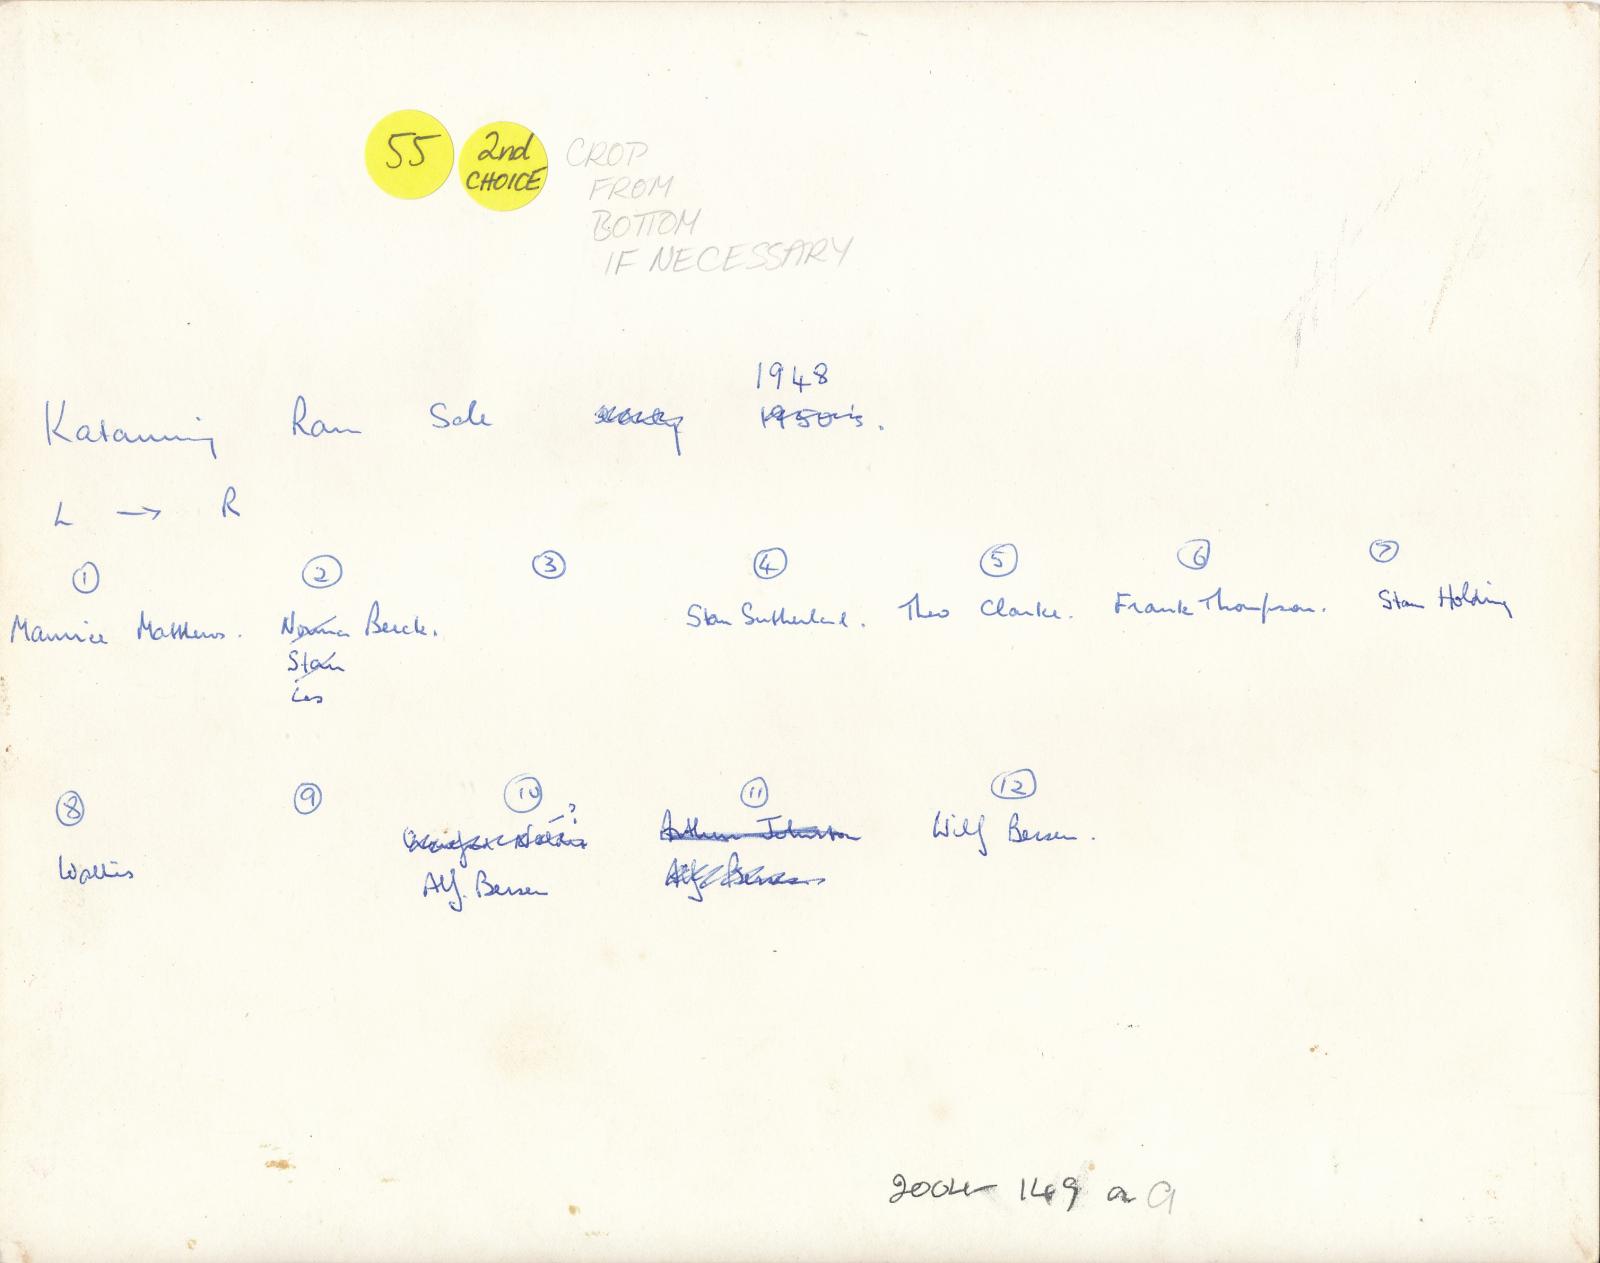 55
2nd
CHOICE
CROP
FROM
BOTTOM
IF NECESSARY
1948
Katanning Ram Sale early 1950's.
L → R
1 2 3 4 5 6 7
Maurice Matthews. Norman Beeck. Stan Sutherland. Theo Clarke. Frank Thompson. Stan Holding
Stan
Les
8 9 10 11 12
?
Arthur Johnston Wilf Bessen.
Wallis Alf. Bessen Alf Bessen
2004-149 a 9